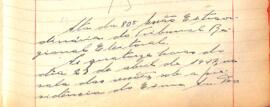 Ata da 80ª Sessão Extraor-
dinária do Tribunal Re-
gional Eleitoral.
Às quatorze horas do
dia 23 de abril de 1947, na
sala das sessões, sob a pre-
sidência do Exmo.